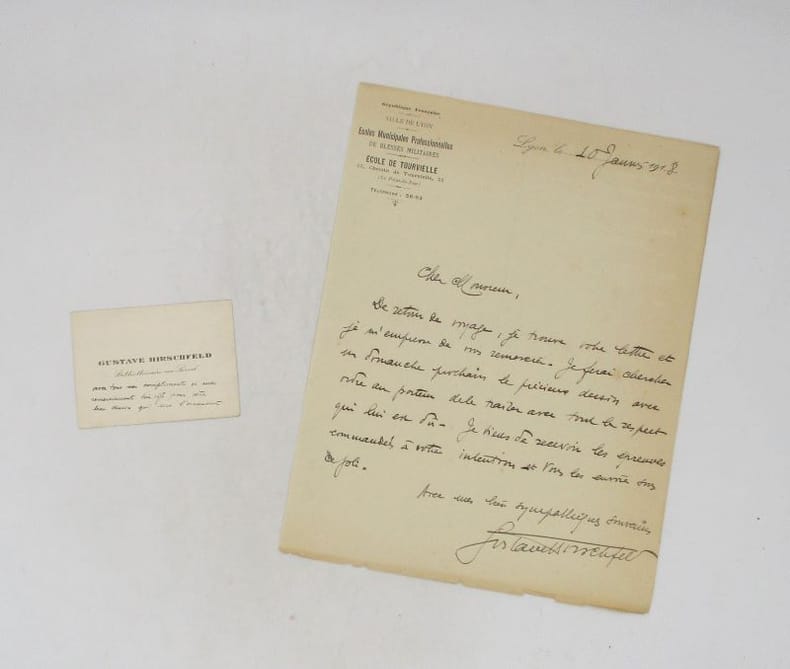 GUSTAVE HIRSCHFELD
avec tous ses compliments et ses
remerciements
République Française
VILLE DE LYON
Ecoles Municipales Professionnelles
DE BLESSÉS MILITAIRES
ÉCOLE DE TOURVIELLE
Chemin de Tourvielle, 25
(Le Point-du-Jour)
TÉLÉPHONE : 56-93
Lyon le 10 Janvier 1918
Cher Monsieur,
De retour de voyage, je trouve votre lettre et
je m'empresse de vous remercier. Je ferai chercher
un dimanche prochain le précieux dessin avec
ordre au porteur de le traiter avec tout le respect
qui lui est dû - Je viens de recevoir les épreuves
commandées à votre intention et vous les envoie sous
ce pli.
Avec mes bien sympathiques souvenirs
Gustave Hirschfeld